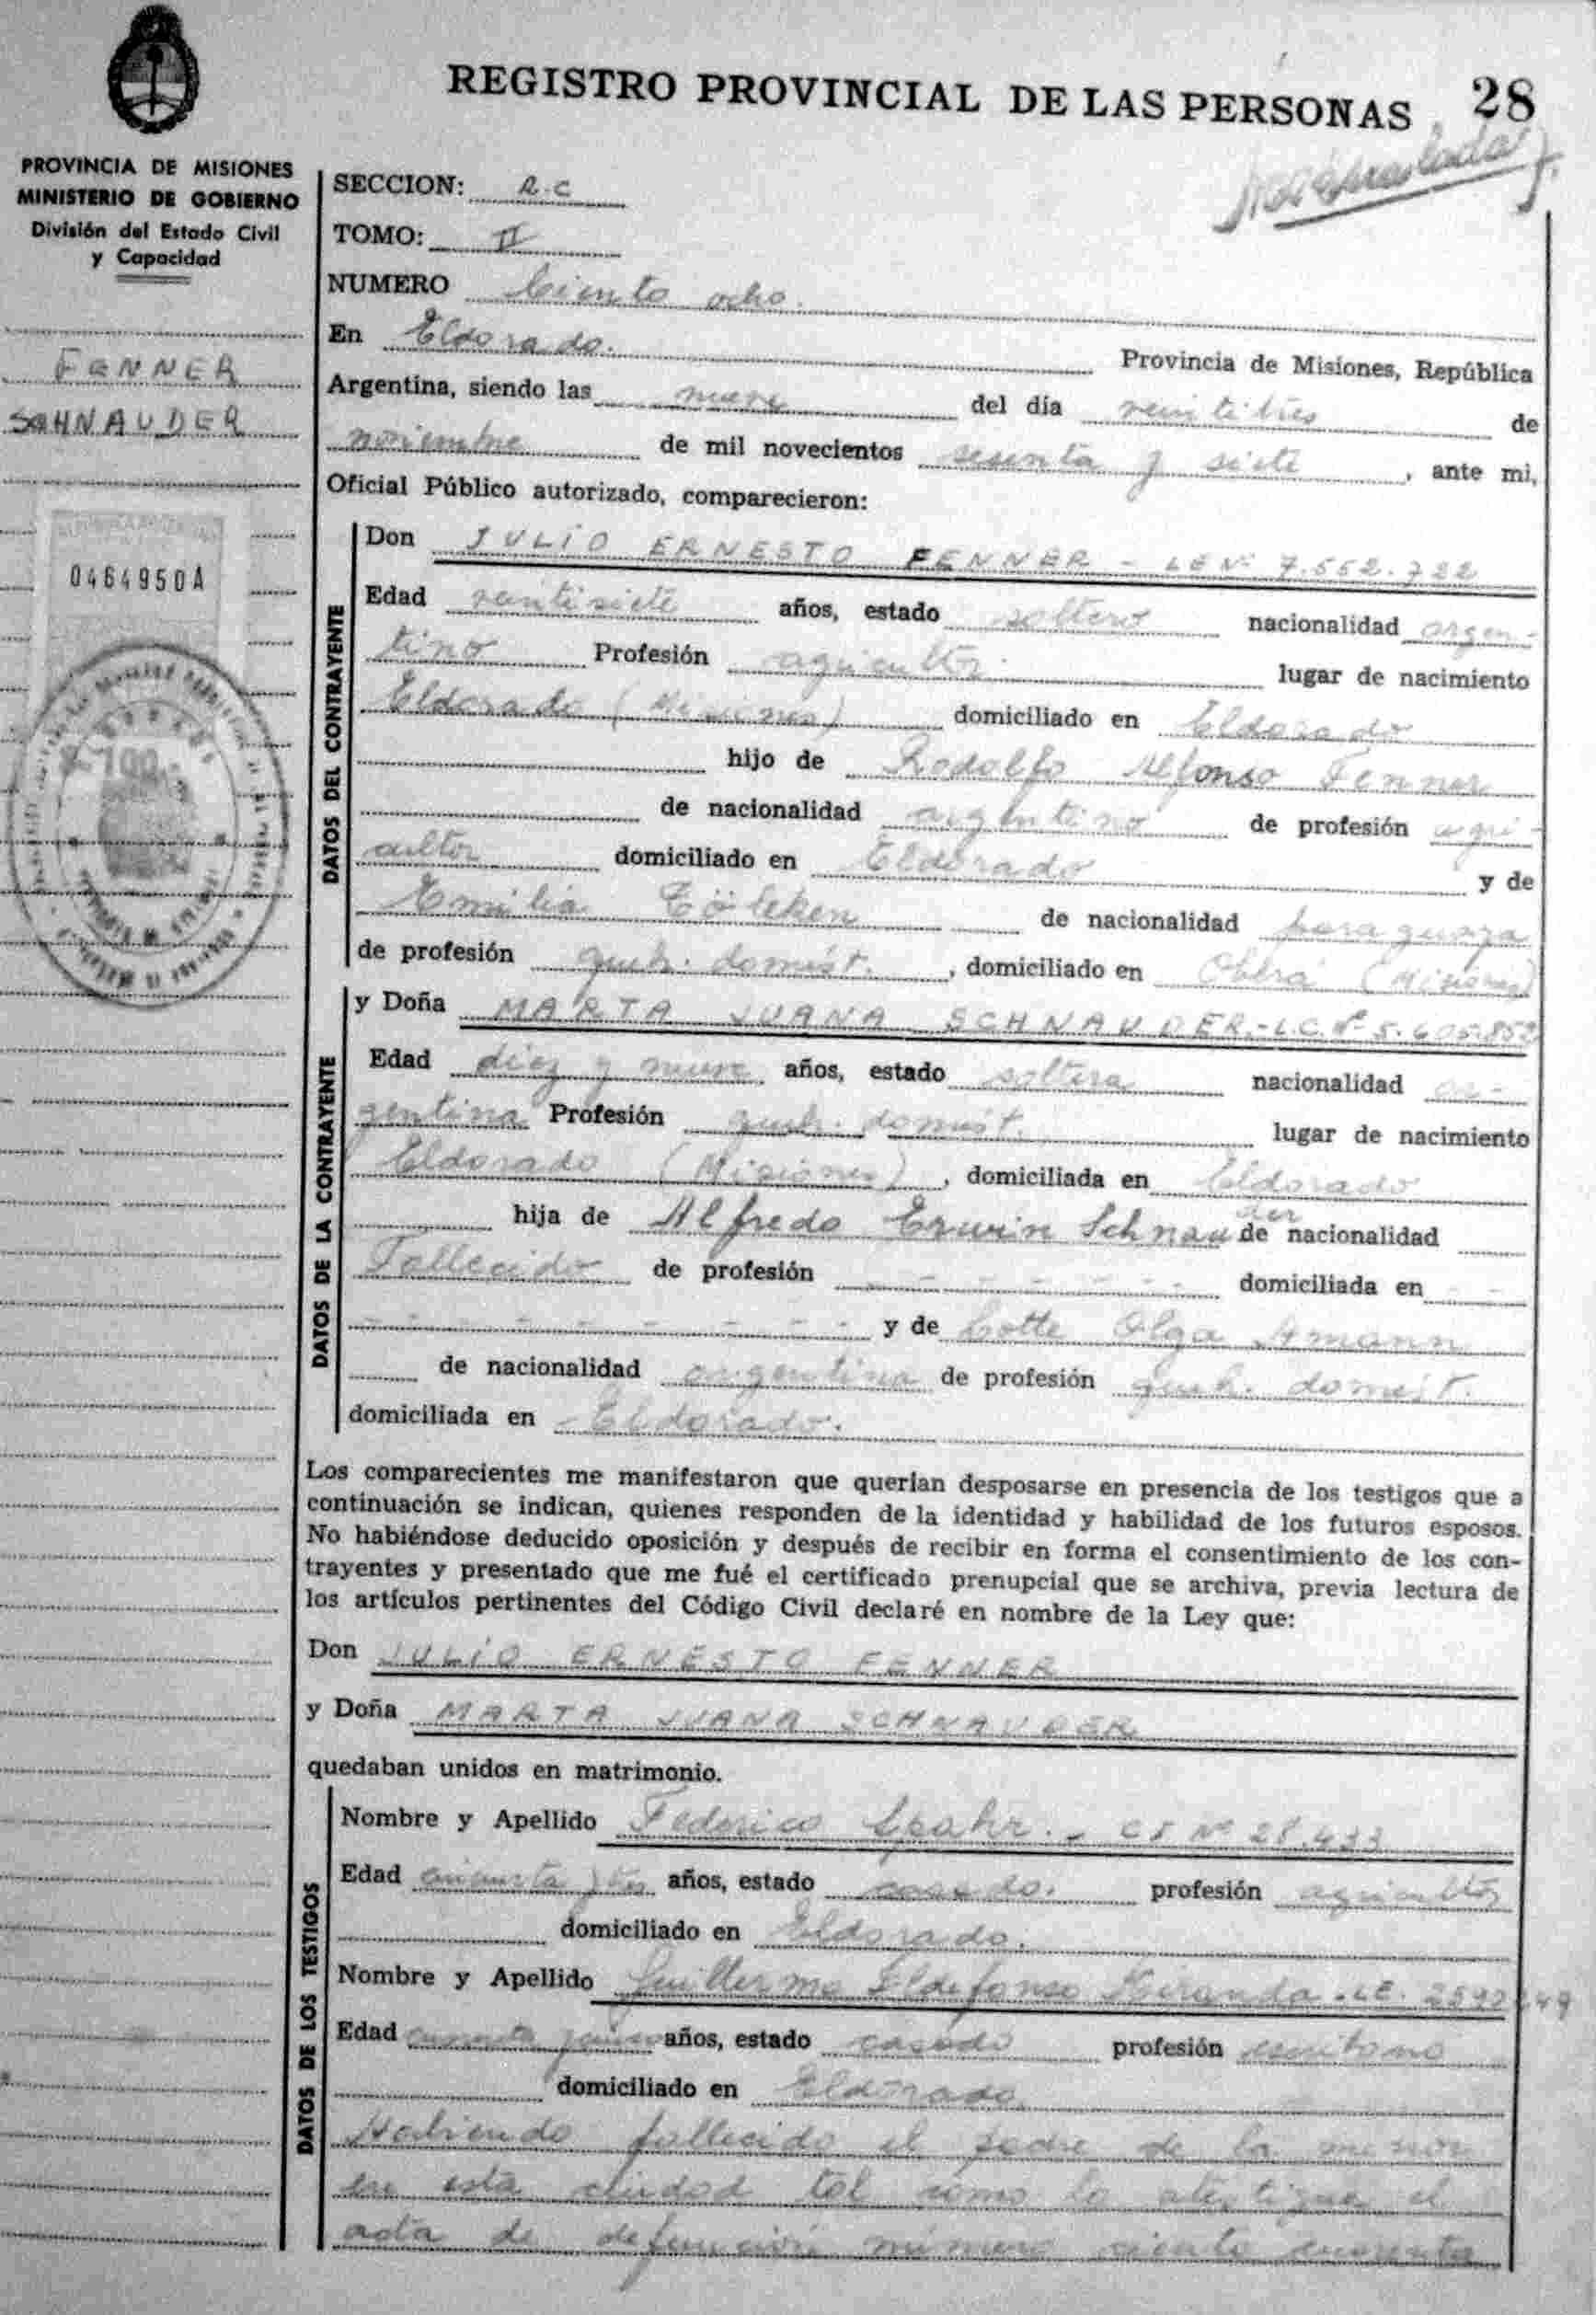 REGISTRO PROVINCIAL DE LAS PERSONAS 28
PROVINCIA DE MISIONES
MINISTERIO DE GOBIERNO
División del Estado Civil
y Capacidad
FENNER
SCHNAUDER
0464950A
100
SECCION: R.C
TOMO: II
NUMERO Ciento ocho.
En Eldorado. Provincia de Misiones, República
Argentina, siendo las nueve del día veintitrés de
noviembre de mil novecientos sesenta y siete, ante mi,
Oficial Público autorizado, comparecieron:
DATOS DEL CONTRAYENTE
Don JULIO ERNESTO FENNER - LE Nº 7.552.722
Edad veintisiete años, estado soltero nacionalidad argen-
tino Profesión agricultor. lugar de nacimiento
Eldorado (Misiones) domiciliado en Eldorado
hijo de Rodolfo Alfonso Fenner
de nacionalidad argentino de profesión agri-
cultor domiciliado en Eldorado y de
Emilia de nacionalidad paraguaya
de profesión queh. domést., domiciliado en Oberá (Misiones)
DATOS DE LA CONTRAYENTE
y Doña MARTA JUANA SCHNAUDER.- L.C. Nº 5.605.852
Edad diez y nueve años, estado soltera nacionalidad ar-
gentina Profesión queh. domést. lugar de nacimiento
Eldorado (Misiones), domiciliada en Eldorado
hija de Alfredo Erwin Schnauder de nacionalidad
Fallecido de profesión - - - - - - - domiciliada en - -
- - - - - - - - y de Lotte Olga Amann
de nacionalidad argentina de profesión queh. domést.
domiciliada en Eldorado.
Los comparecientes me manifestaron que querían desposarse en presencia de los testigos que a
continuación se indican, quienes responden de la identidad y habilidad de los futuros esposos.
No habiéndose deducido oposición y después de recibir en forma el consentimiento de los con-
trayentes y presentado que me fué el certificado prenupcial que se archiva, previa lectura de
los artículos pertinentes del Código Civil declaré en nombre de la Ley que:
Don JULIO ERNESTO FENNER
y Doña MARTA JUANA SCHNAUDER
quedaban unidos en matrimonio.
DATOS DE LOS TESTIGOS
Nombre y Apellido Federico Spahr.- CI Nº 28.433
Edad cincuenta y tres años, estado casado. profesión agricultor
domiciliado en Eldorado.
Nombre y Apellido Guillermo Ildefonso Miranda.LE.
Edad años, estado casado profesión
domiciliado en Eldorado.
Habiendo fallecido el padre de la menor
en esta ciudad tal como lo atestigua el
acta de defunción número ciento cuarenta